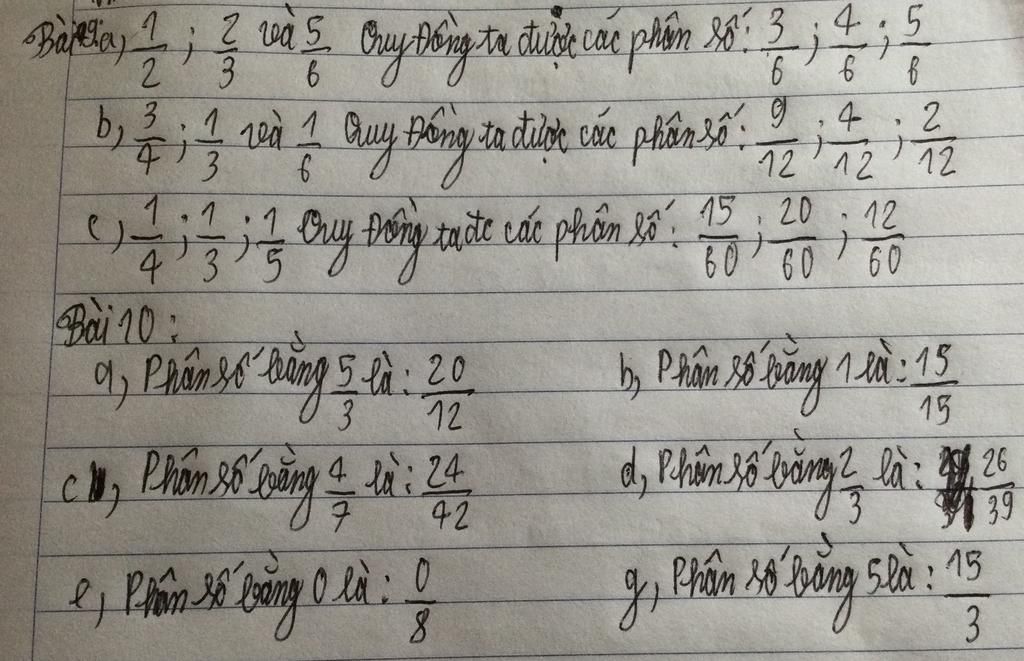 Bài 9: a, 1/2 ; 2/3 và 5/6 Quy Đồng ta được các phân số: 3/6 ; 4/6 ; 5/6
b, 3/4 ; 1/3 và 1/6 Quy Đồng ta được các phân số: 9/12 ; 4/12 ; 2/12
c, 1/4 ; 1/3 ; 1/5 Quy Đồng ta đc các phân số: 15/60 ; 20/60 ; 12/60
Bài 10:
a, Phân số bằng 5/3 là: 20/12 b, Phân số bằng 1 là: 15/15
c, Phân số bằng 4/7 là: 24/42 d, Phân số bằng 2/3 là: 26/39
e, Phân số bằng 0 là: 0/8 g, Phân số bằng 5 là: 15/3